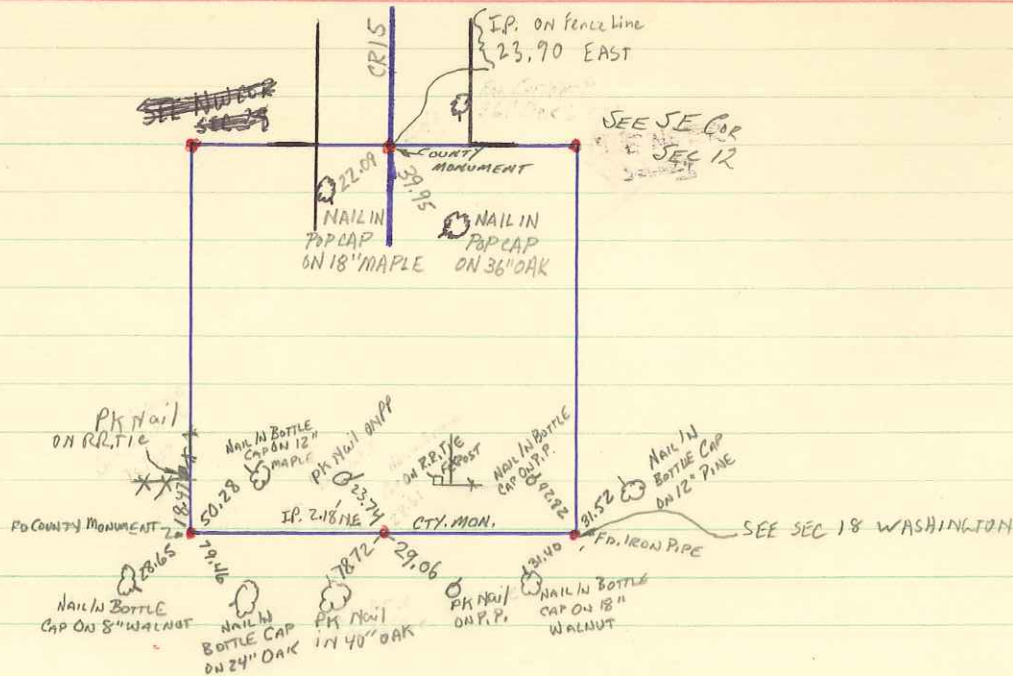 I.P. ON Fence Line
23.90 EAST
CR15
SEE NW COR
SEE SE COR
SEC 12
COUNTY
MONUMENT
22.09
39.95
NAIL IN
POP CAP
ON 18" MAPLE
NAIL IN
POP CAP
ON 36" OAK
PK Nail
ON RR.TIE
18.47
NAIL IN BOTTLE
CAP ON 12"
MAPLE
50.28
PK Nail ON PP
23.74
ON R.R. TIE
F. POST
NAIL IN BOTTLE
CAP ON P.P.
42.82
31.52
NAIL IN
BOTTLE CAP
ON 12" PINE
FD COUNTY MONUMENT
I.P. 2.18' NE
CTY. MON.
FD. IRON PIPE
SEE SEC 18 WASHINGTON
28.65
79.46
78.72
29.06
31.40
NAIL IN BOTTLE
CAP ON 8" WALNUT
NAIL IN
BOTTLE CAP
ON 24" OAK
PK Nail
IN 40" OAK
PK Nail
ON P.P.
NAIL IN BOTTLE
CAP ON 18"
WALNUT